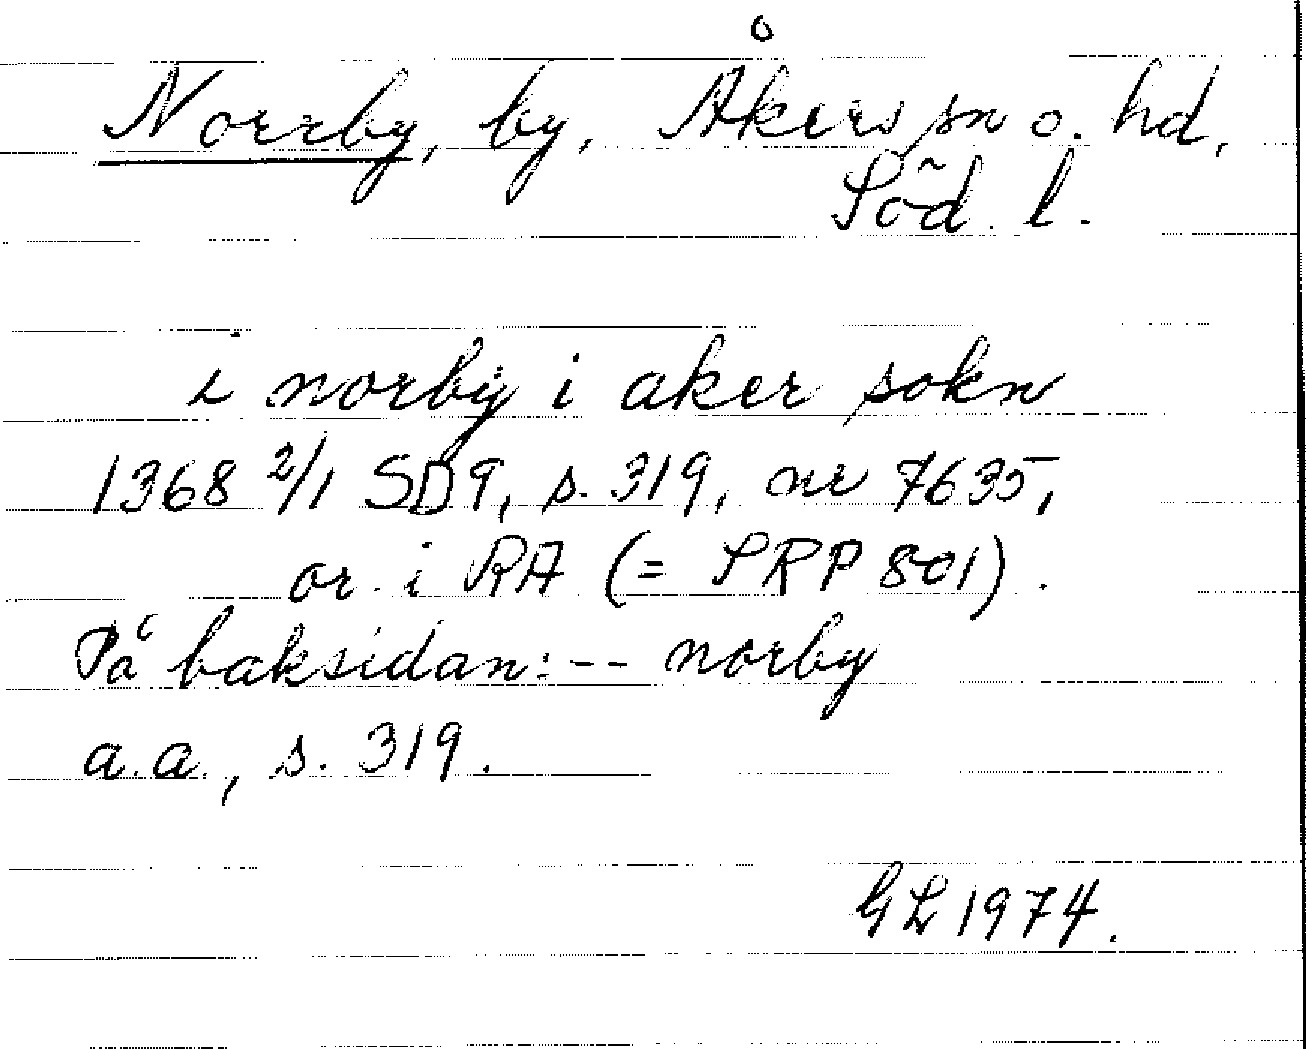 Norrby, by, Åkers sn o. hd,
Söd. l.
i norbÿ i aker sokn
1368 2/1 SD 9, s. 319, nr 7635,
or. i RA (= SRP 801).
På baksidan: -- norby
a.a., s. 319.
GL 1974.